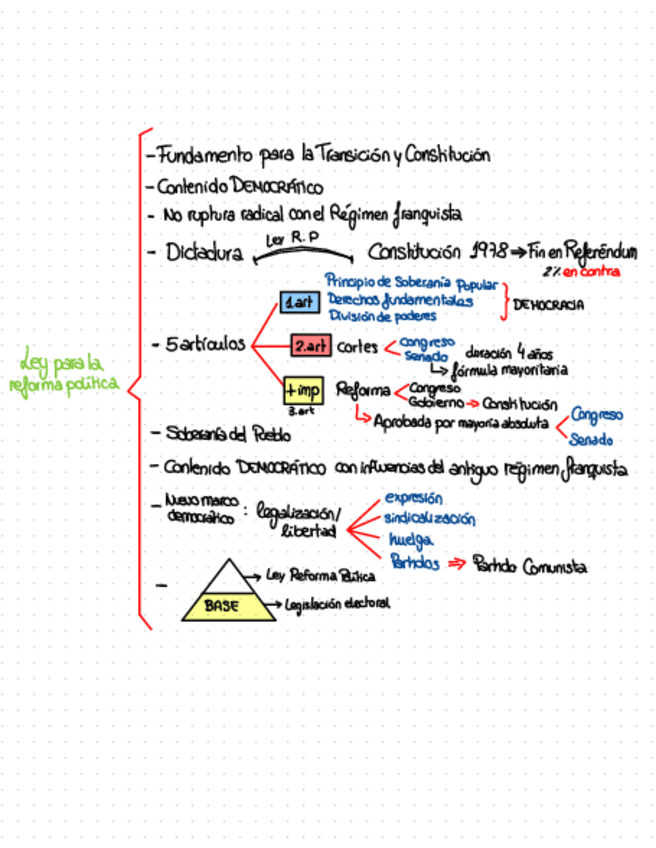 - Fundamento para la Transición y Constitución
- Contenido DEMOCRÁTICO
- No ruptura radical con el Régimen franquista
Ley R.P
- Dictadura Constitución 1978 → Fin en Referéndum
2% en contra
Principio de Soberanía Popular
1.art Derechos fundamentales DEMOCRACIA
División de poderes
- 5 artículos 2.art Cortes Congreso
Senado duración 4 años
↳ fórmula mayoritaria
Ley para la
reforma política
+ imp Reforma Congreso
3.art Gobierno → Constitución
↳ Aprobada por mayoría absoluta Congreso
Senado
- Soberanía del Pueblo
- Contenido DEMOCRÁTICO con influencias del antiguo régimen franquista
- Nuevo marco
democrático : legalización/
libertad
expresión
sindicalización
huelga
Partidos ⇒ Partido Comunista
- → Ley Reforma Política
BASE → Legislación electoral